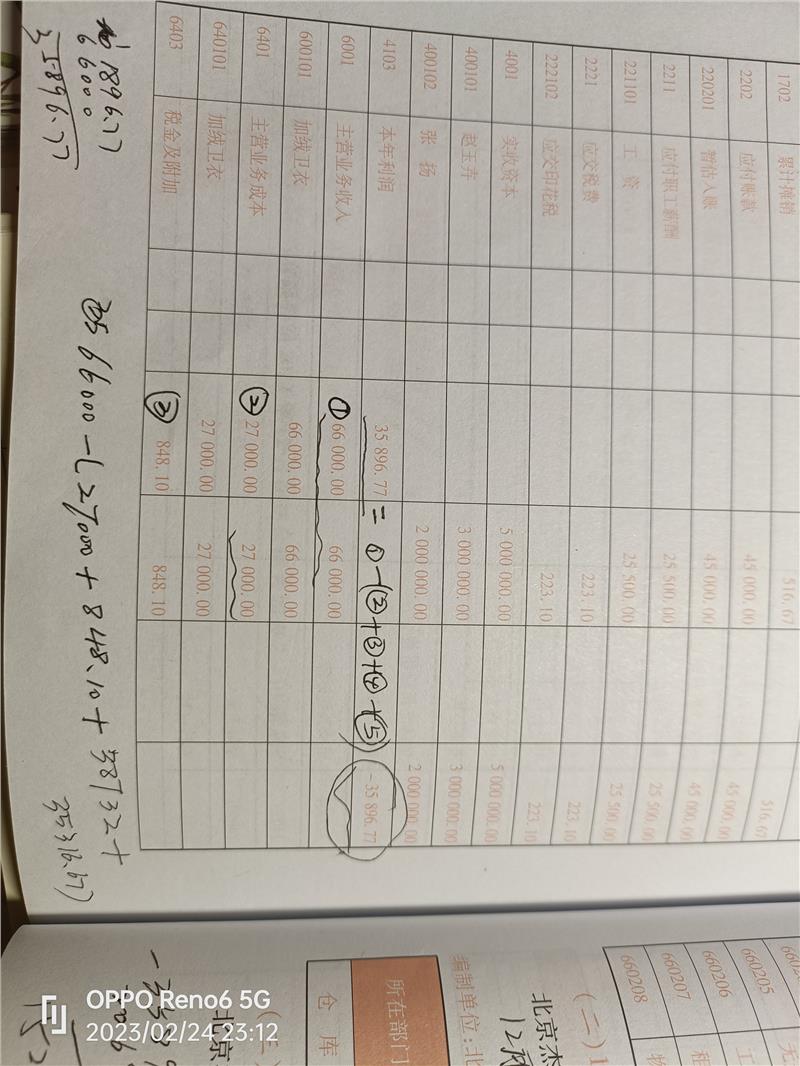 1702 累计摊销 516.67 516.67
2202 应付账款 45 000.00 45 000.00
220201 暂估入账 45 000.00 45 000.00
2211 应付职工薪酬 25 500.00 25 500.00
221101 工 资 25 500.00 25 500.00
2221 应交税费 223.10 223.10
222102 应交印花税 223.10 223.10
4001 实收资本 5 000 000.00 5 000 000.00
400101 赵玉卉 3 000 000.00 3 000 000.00
400102 张 扬 2 000 000.00 2 000 000.00
4103 本年利润 35 896.77 = ①-(②+③+④+⑤) -35 896.77
6001 主营业务收入 ① 66 000.00 66 000.00
600101 加绒卫衣 66 000.00 66 000.00
6401 主营业务成本 ② 27 000.00 27 000.00
640101 加绒卫衣 27 000.00 27 000.00
6403 税金及附加 ③ 848.10 848.10
66000-(27000+848.10+38732+
35316.67)
101896.77
66000
35896.77
660205 工
660206 租
660207 物
660208
(二)1
北京杰
12月
编制单位:北
所在部门
仓 库
北京
OPPO Reno6 5G
2023/02/24 23:12